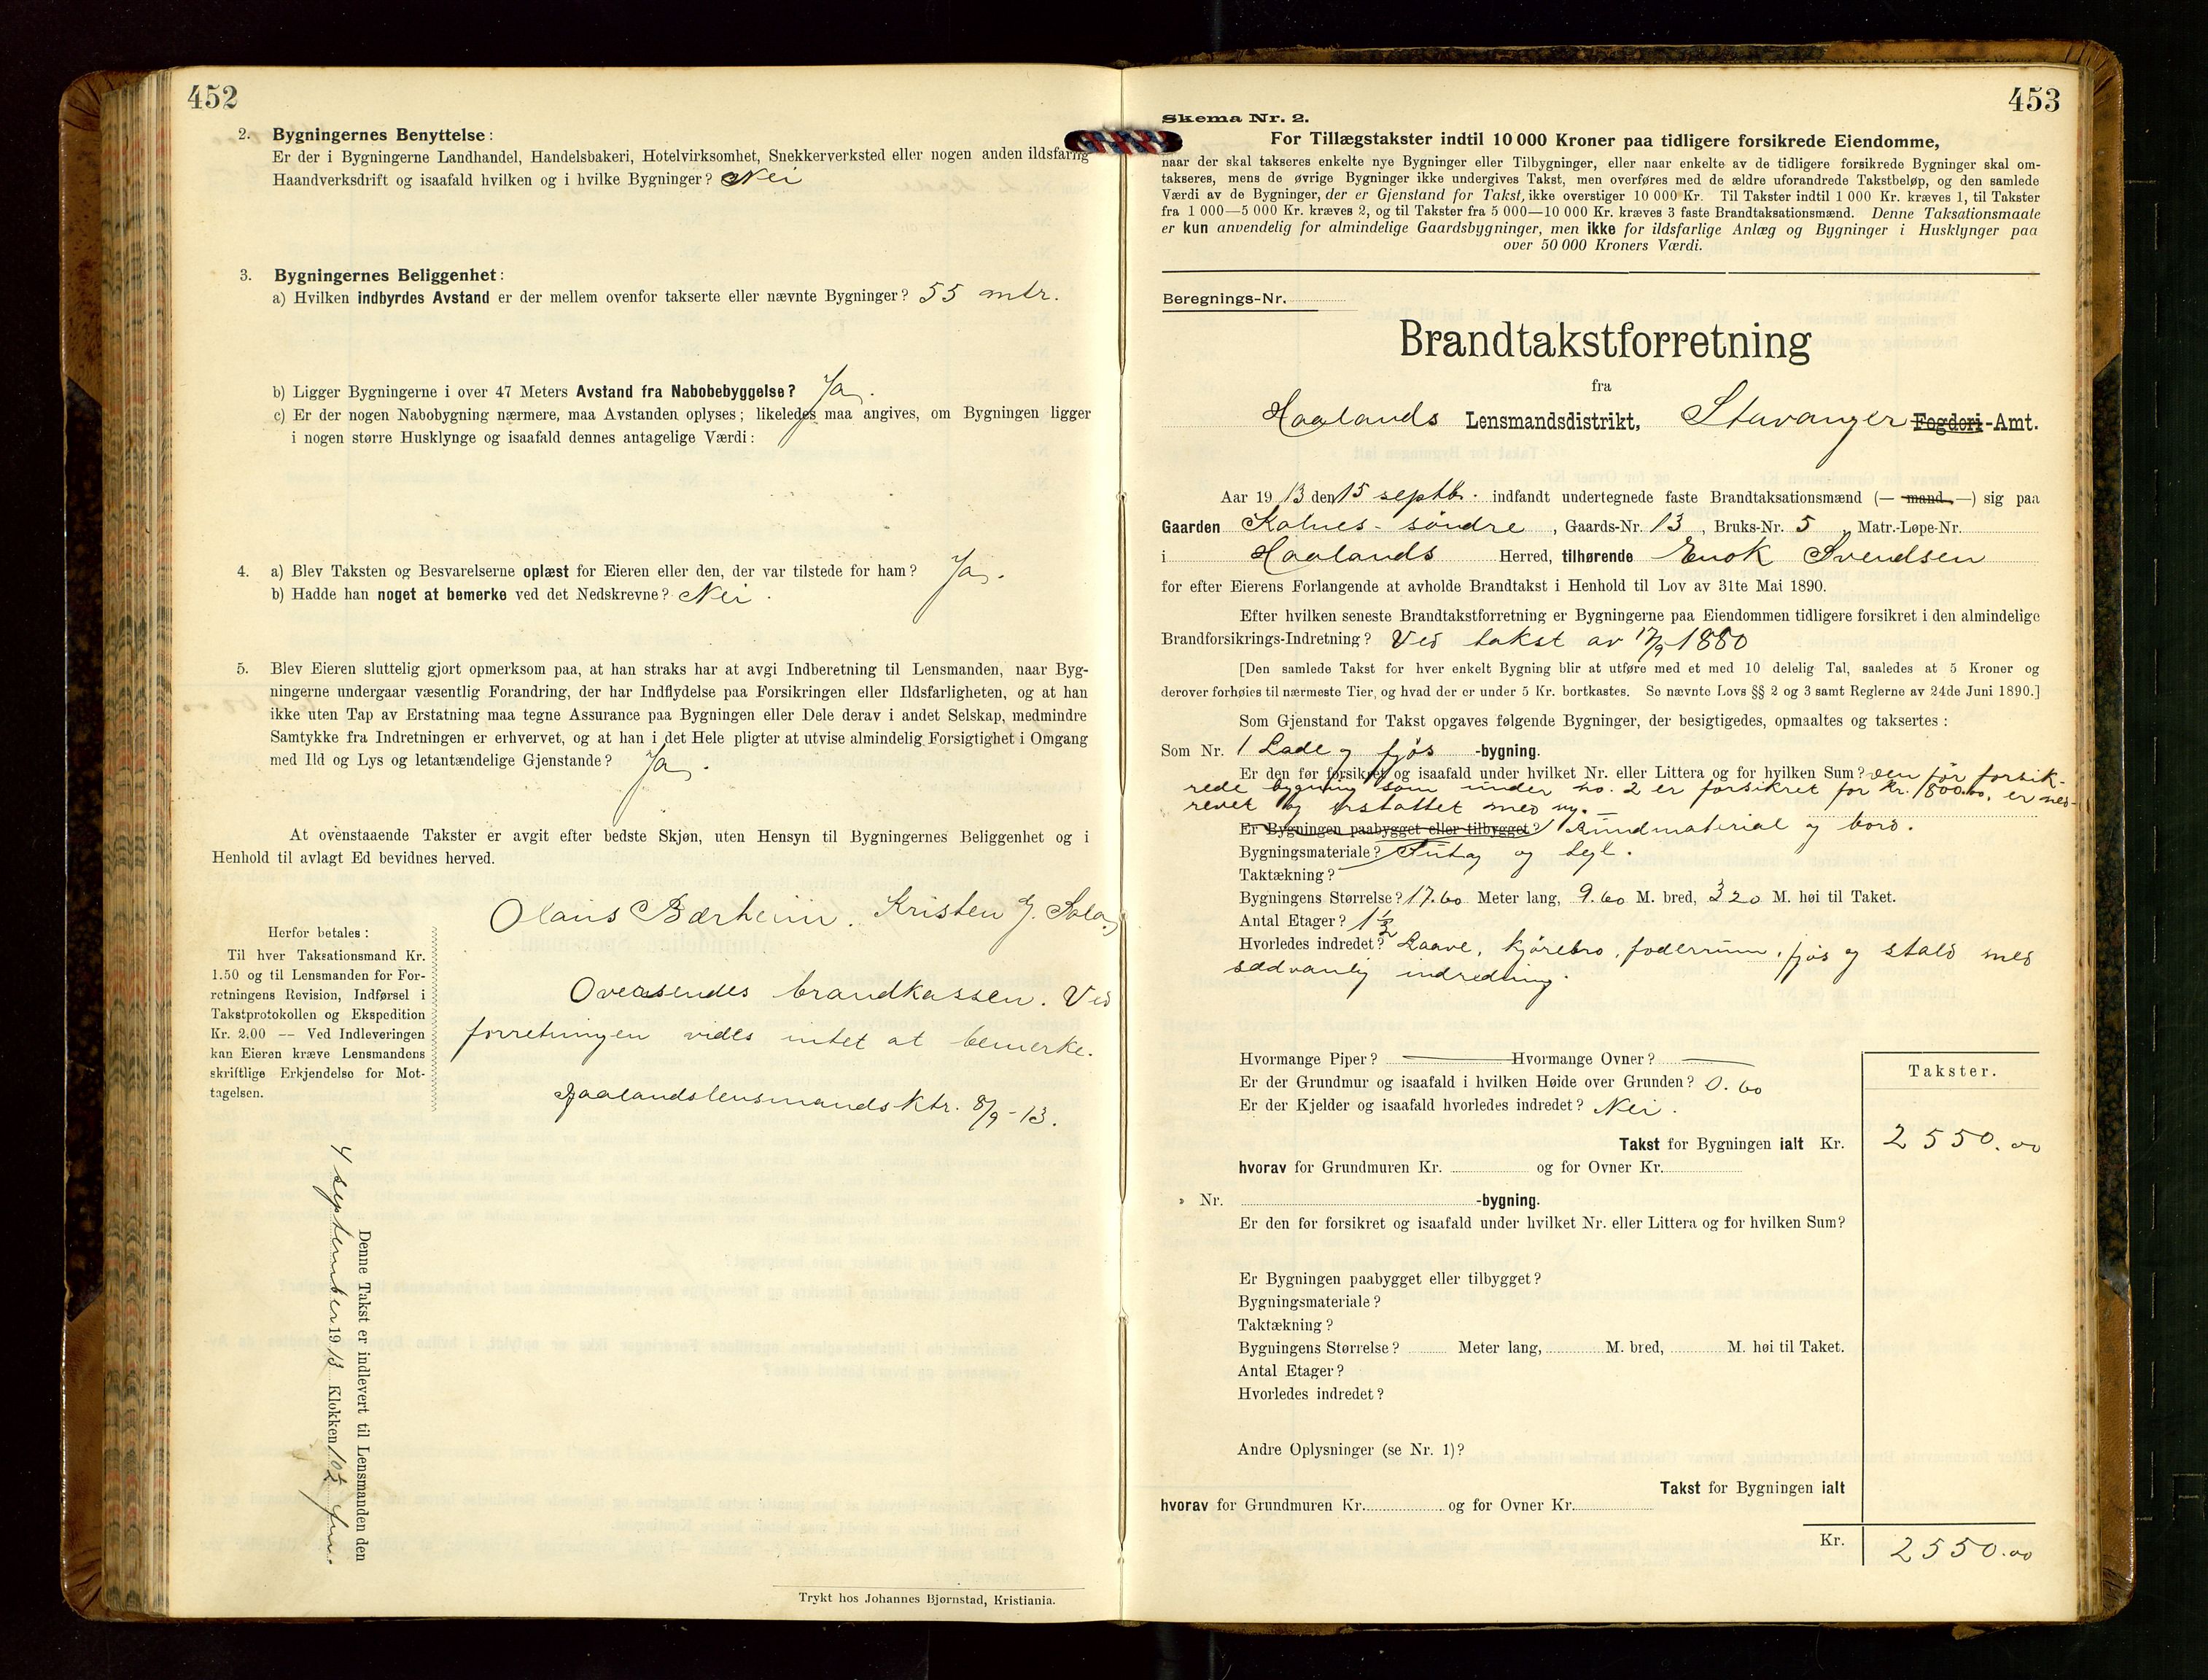 452
2. Bygningernes Benyttelse:
Er der i Bygningerne Landhandel, Handelsbakeri, Hotelvirksomhet, Snekkerverksted eller nogen anden ildsfarlig
Haandverksdrift og isaafald hvilken og i hvilke Bygninger? Nei
3. Bygningernes Beliggenhet:
a) Hvilken indbyrdes Avstand er der mellem ovenfor takserte eller nævnte Bygninger? 55 mtr.
b) Ligger Bygningerne i over 47 Meters Avstand fra Nabobebyggelse? Ja.
c) Er der nogen Nabobygning nærmere, maa Avstanden oplyses; likeledes maa angives, om Bygningen ligger
i nogen større Husklynge og isaafald dennes antagelige Værdi:
4. a) Blev Taksten og Besvarelserne oplæst for Eieren eller den, der var tilstede for ham? Ja.
b) Hadde han noget at bemerke ved det Nedskrevne? Nei.
5. Blev Eieren sluttelig gjort opmerksom paa, at han straks har at avgi Indberetning til Lensmanden, naar Byg-
ningerne undergaar væsentlig Forandring, der har Indflydelse paa Forsikringen eller Ildsfarligheten, og at han
ikke uten Tap av Erstatning maa tegne Assurance paa Bygningen eller Dele derav i andet Selskap, medmindre
Samtykke fra Indretningen er erhvervet, og at han i det Hele pligter at utvise almindelig Forsigtighet i Omgang
med Ild og Lys og letantændelige Gjenstande? Ja.
At ovenstaaende Takster er avgit efter bedste Skjøn, uten Hensyn til Bygningernes Beliggenhet og i
Henhold til avlagt Ed bevidnes herved.
Olaus Bærheim. Kristen J. Sola
Herfor betales:
Til hver Taksationsmand Kr.
1.50 og til Lensmanden for For-
retningens Revision, Indførsel i
Takstprotokollen og Ekspedition
Kr. 2.00 — Ved Indleveringen
kan Eieren kræve Lensmandens
skriftlige Erkjendelse for Mot-
tagelsen.
Oversendes brandkassen. Ved
forretningen vides intet at bemerke.
Haalandslensmandsktr. 8/9-13.
Denne Takst er indlevert til Lensmanden den
4 september 1913 Klokken 10½ fm.
Trykt hos Johannes Bjørnstad, Kristiania.
453
Skema Nr. 2.
For Tillægstakster indtil 10 000 Kroner paa tidligere forsikrede Eiendomme,
naar der skal takseres enkelte nye Bygninger eller Tilbygninger, eller naar enkelte av de tidligere forsikrede Bygninger skal om-
takseres, mens de øvrige Bygninger ikke undergives Takst, men overføres med de ældre uforandrede Takstbeløp, og den samlede
Værdi av de Bygninger, der er Gjenstand for Takst, ikke overstiger 10 000 Kr. Til Takster indtil 1 000 Kr. kræves 1, til Takster
fra 1 000—5 000 Kr. kræves 2, og til Takster fra 5 000—10 000 Kr. kræves 3 faste Brandtaksationsmænd. Denne Taksationsmaate
er kun anvendelig for almindelige Gaardsbygninger, men ikke for ildsfarlige Anlæg og Bygninger i Husklynger paa
over 50 000 Kroners Værdi.
Beregnings-Nr.
Brandtakstforretning
fra
Haalands Lensmandsdistrikt, Stavanger Fogderi-Amt.
Aar 1913 den 15 septb. indfandt undertegnede faste Brandtaksationsmænd (— mand —) sig paa
Gaarden Kolnes-söndre, Gaards-Nr. 13, Bruks-Nr. 5, Matr.-Løpe-Nr.
i Haalands Herred, tilhørende Enok Svendsen
for efter Eierens Forlangende at avholde Brandtakst i Henhold til Lov av 31te Mai 1890.
Efter hvilken seneste Brandtakstforretning er Bygningerne paa Eiendommen tidligere forsikret i den almindelige
Brandforsikrings-Indretning? Ved takst av 17/9 1880
[Den samlede Takst for hver enkelt Bygning blir at utføre med et med 10 delelig Tal, saaledes at 5 Kroner og
derover forhøies til nærmeste Tier, og hvad der er under 5 Kr. bortkastes. Se nævnte Lovs §§ 2 og 3 samt Reglerne av 24de Juni 1890.]
Som Gjenstand for Takst opgaves følgende Bygninger, der besigtigedes, opmaaltes og taksertes:
Som Nr. 1 Lade og fjøs -bygning.
Er den før forsikret og isaafald under hvilket Nr. eller Littera og for hvilken Sum? Den før forsik-
rede bygning som under no. 2 er forsikret for kr. 1800.00, er ned-
revet og erstattet med ny.
Er Bygningen paabygget eller tilbygget?
Bygningsmateriale? Bindmaterial og bord.
Taktækning? og tegl.
Bygningens Størrelse? 17.60 Meter lang, 9.60 M. bred, 3.20 M. høi til Taket.
Antal Etager? 1½
Hvorledes indredet? Laave, kjørebro, foderrum, fjøs og stald med
sædvanlig indredning.
Hvormange Piper? — Hvormange Ovner? —
Er der Grundmur og isaafald i hvilken Høide over Grunden? 0.60
Er der Kjelder og isaafald hvorledes indredet? Nei.
Takster.
Takst for Bygningen ialt Kr. 2550.00
hvorav for Grundmuren Kr. og for Ovner Kr.
» Nr. -bygning.
Er den før forsikret og isaafald under hvilket Nr. eller Littera og for hvilken Sum?
Er Bygningen paabygget eller tilbygget?
Bygningsmateriale?
Taktækning?
Bygningens Størrelse? Meter lang, M. bred, M. høi til Taket.
Antal Etager?
Hvorledes indredet?
Andre Oplysninger (se Nr. 1)?
Takst for Bygningen ialt
hvorav for Grundmuren Kr. og for Ovner Kr.
Kr. 2550.00